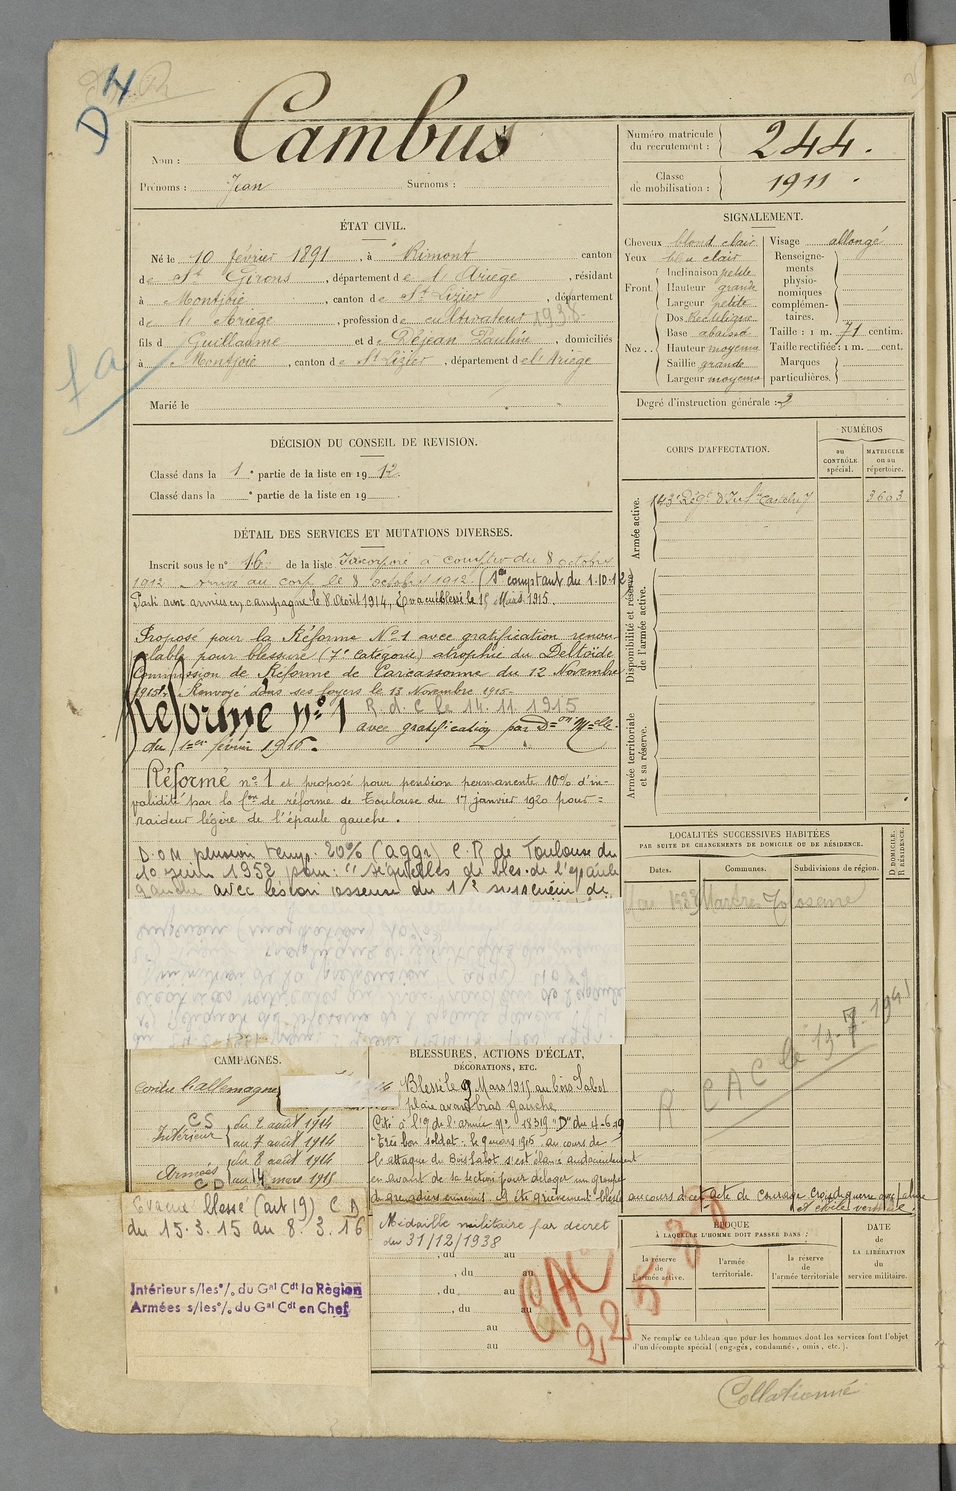 D 4
Nom : Cambus
Prénoms : Jean Surnoms :
Numéro matricule du recrutement : 244.
Classe de mobilisation : 1911.
ÉTAT CIVIL.
Né le 10 février 1891, à Rimont canton
de St Girons, département de l'Ariège, résidant
à Montjoie, canton de St Lizier, département
de l'Ariège, profession de cultivateur 1938
fils d Guillaume et de Déjean Pauline, domiciliés
à Montjoie, canton de St Lizier, département de l'Ariège
Marié le
SIGNALEMENT.
Cheveux blond clair
Yeux bleu clair
Front. Inclinaison petite
Hauteur grande
Largeur petite
Nez .. Dos Rectiligne
Base abaissé
Hauteur moyenne
Saillie grande
Largeur moyenne
Visage allongé
Renseignements physionomiques complémentaires.
Taille : 1 m. 71 centim.
Taille rectifiée : 1 m. cent.
Marques particulières.
Degré d'instruction générale : 3
DÉCISION DU CONSEIL DE REVISION.
Classé dans la 1e partie de la liste en 1912
Classé dans la e partie de la liste en 19 .
CORPS D'AFFECTATION.
NUMÉROS
au CONTRÔLE spécial.
MATRICULE ou au répertoire.
Armée active.
143e Régt d'Infie 3603
Disponibilité et réserve de l'armée active.
Armée territoriale et sa réserve.
DÉTAIL DES SERVICES ET MUTATIONS DIVERSES.
Inscrit sous le n° 16 de la liste Incorporé à compter du 8 octobre
1912 Arrivé au corps le 8 octobre 1912 (Sce comptant du 1.10.12
Parti aux armées en campagne le 8 Août 1914, Evacué blessé le 15 Mars 1915.
Proposé pour la Réforme N° 1 avec gratification renou
velable pour blessure (7e catégorie) atrophie du Deltoïde
Commission de Réforme de Carcassonne du 12 Novembre
1915. Renvoyé dans ses foyers le 13 Novembre 1915.
Réformé n° 1 R.d.C le 14.11.1915
avec gratification par Don Melle
du 1er février 1916.
Réformé n° 1 et proposé pour pension permanente 10% d'in-
validité par la Con de réforme de Toulouse du 17 janvier 1920 pour =
raideur légère de l'épaule gauche.
D.O.M. pension temp. 20% (aggr) C.R de Toulouse du
10 juin 1952 pour : "séquelles de bles. de l'épaule
gauche avec lésion osseuse du 1/3 supérieur de
LOCALITÉS SUCCESSIVES HABITÉES
PAR SUITE DE CHANGEMENTS DE DOMICILE OU DE RÉSIDENCE.
Dates. Communes. Subdivisions de région.
D DOMICILE. R RÉSIDENCE.
1933 Martres Tolosane
R CAC le 13-7-1941
CAMPAGNES.
Contre l'Allemagne
C.S
Intérieur du 2 août 1914
au 7 août 1914
Armées du 8 août 1914
C.D au 14 mars 1915
Evacué blessé (art 19) C D
du 15.3.15 au 8.3.16
Intérieur s/les o/. du Gal Cdt la Région
Armées s/les o/. du Gal Cdt en Chef
BLESSURES, ACTIONS D'ÉCLAT,
DÉCORATIONS, ETC.
Blessé le 9 Mars 1915 au bois Sabot
plaie avant bras gauche
Cité à l'O de l'armée N° 18319 "D" du 4-6-19
"Très bon soldat. le 9 mars 1915 au cours de
l'attaque du Bois Sabot s'est élancé audacieusement
en avant de sa section pour déloger un groupe
de grenadiers ennemis. A été grièvement blessé au cours d'cet acte de courage Croix de guerre avec palme
et étoile vermeil.
Médaille militaire par décret
du 31/12/1938
, du au
, du au
, du au
, du au
au
au
CAC
22 5
ÉPOQUE
À LAQUELLE L'HOMME DOIT PASSER DANS :
la réserve de l'armée active.
l'armée territoriale.
la réserve de l'armée territoriale
DATE de LA LIBÉRATION du service militaire.
Ne remplir ce tableau que pour les hommes dont les services font l'objet
d'un décompte spécial (engagés, condamnés, omis, etc.).
Collationné